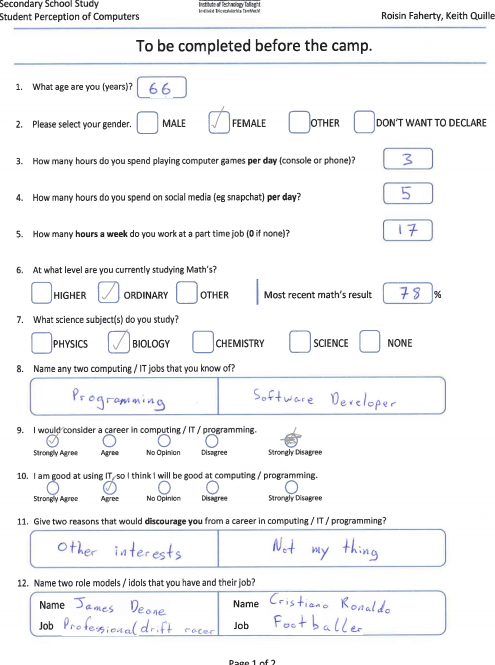 Secondary School Study
Student Perception of Computers
Institute of Technology Tallaght
Roisin Faherty, Keith Quille
To be completed before the camp.
1. What age are you (years)? 66
2. Please select your gender. MALE ✓ FEMALE OTHER DON'T WANT TO DECLARE
3. How many hours do you spend playing computer games per day (console or phone)? 3
4. How many hours do you spend on social media (eg snapchat) per day? 5
5. How many hours a week do you work at a part time job (0 if none)? 17
6. At what level are you currently studying Math's?
HIGHER ✓ ORDINARY OTHER Most recent math's result 78 %
7. What science subject(s) do you study?
PHYSICS ✓ BIOLOGY CHEMISTRY SCIENCE NONE
8. Name any two computing / IT jobs that you know of?
Programming Software Developer
9. I would consider a career in computing / IT / programming.
Strongly Agree Agree No Opinion Disagree Strongly Disagree
10. I am good at using IT, so I think I will be good at computing / programming.
Strongly Agree Agree No Opinion Disagree Strongly Disagree
11. Give two reasons that would discourage you from a career in computing / IT / programming?
Other interests Not my thing
12. Name two role models / idols that you have and their job?
Name James Deane Name Cristiano Ronaldo
Job Professional drift racer Job Footballer
Page 1 of 2